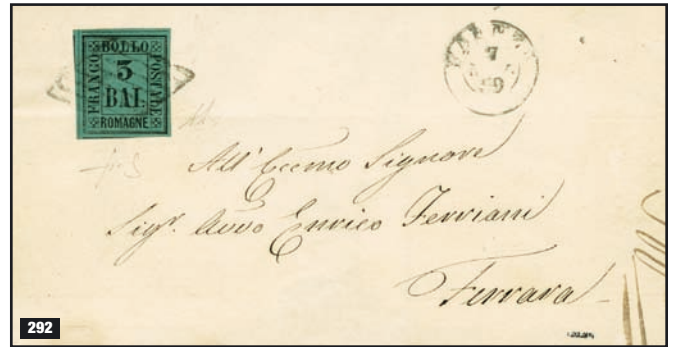 FRANCO BOLLO POSTALE
3
BAI
ROMAGNE
7
59
All' Eccmo Signore
Sigr. Avvo Enrico Ferriani
Ferrara
292